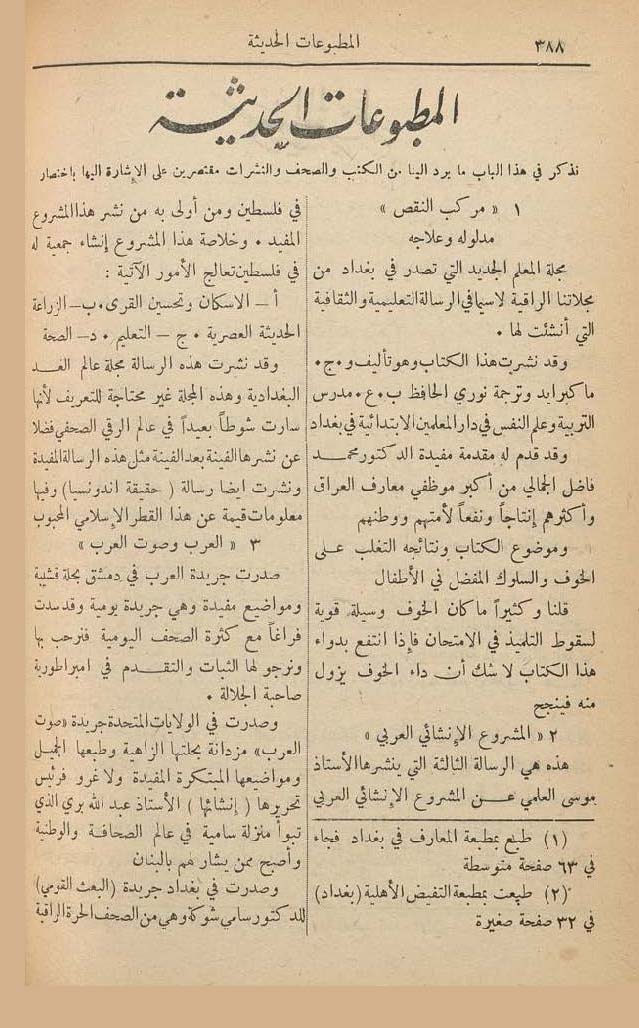 ٣٨٨
المطبوعات الحديثة
المطبوعات الحديثة
نذكر في هذا الباب ما يرد الينا من الكتب والصحف والنشرات مقتصرين على الإشارة اليها باختصار
١ «مركب النقص»
مدلوله وعلاجه
مجلة المعلم الجديد التي تصدر في بغداد من
مجلاتنا الراقية لاسيما في الرسالة التعليمية والثقافية
التي أنشئت لها .
وقد نشرت هذا الكتاب وهو تأليف و.ج.
ماكبرايد وترجمة نوري الحافظ ب.ع. مدرس
التربية وعلم النفس في دار المعلمين الابتدائية في بغداد
وقد قدم له مقدمة مفيدة الدكتور محمد
فاضل الجمالي من أكبر موظفي معارف العراق
وأكثرهم إنتاجاً ونفعاً لأمتهم ووطنهم
وموضوع الكتاب ونتائجه التغلب على
الخوف والسلوك المفضل في الأطفال
قلنا وكثيراً ما كان الخوف وسيلة قوية
لسقوط التلميذ في الامتحان فإذا انتفع بدواء
هذا الكتاب لا شك أن داء الخوف يزول
منه فينجح
٢ «المشروع الإنشائي العربي»
هذه هي الرسالة الثالثة التي ينشرها الأستاذ
موسى العلمي عن المشروع الإنشائي العربي
(١) طبع بمطبعة المعارف في بغداد فجاء
في ٦٣ صفحة متوسطة
(٢) طبعت بمطبعة التفيض الأهلية (بغداد)
في ٣٢ صفحة صغيرة
في فلسطين ومن أولى به من نشر هذا المشروع
المفيد . وخلاصة هذا المشروع إنشاء جمعية له
في فلسطين تعالج الأمور الآتية :
أ – الاسكان وتحسين القرى . ب – الزراعة
الحديثة العصرية . ج – التعليم . د – الصحة
وقد نشرت هذه الرسالة مجلة عالم الغد
البغدادية وهذه المجلة غير محتاجة للتعريف لأنها
سارت شوطاً بعيداً في عالم الرقي الصحفي فضلا
عن نشرها الفينة بعد الفينة مثل هذه الرسالة المفيدة
ونشرت ايضا رسالة (حقيقة اندونسيا) وفيها
معلومات قيمة عن هذا القطر الإسلامي المحبوب
٣ «العرب وصوت العرب»
صدرت جريدة العرب في دمشق بحلة قشيبة
ومواضيع مفيدة وهي جريدة يومية وقد سدت
فراغاً مع كثرة الصحف اليومية فنرحب بها
ونرجو لها الثبات والتقدم في امبراطورية
صاحبة الجلالة .
وصدرت في الولايات المتحدة جريدة «صوت
العرب» مزدانة بحلتها الزاهية وطبعها الجميل
ومواضيعها المبتكرة المفيدة ولا غرو فرئيس
تحريرها (إنشائها) الأستاذ عبد الله بري الذي
تبوأ منزلة سامية في عالم الصحافة والوطنية
وأصبح ممن يشار لهم بالبنان
وصدرت في بغداد جريدة (البعث القومي)
للدكتور سامي شوكة وهي من الصحف الحرة الراقية